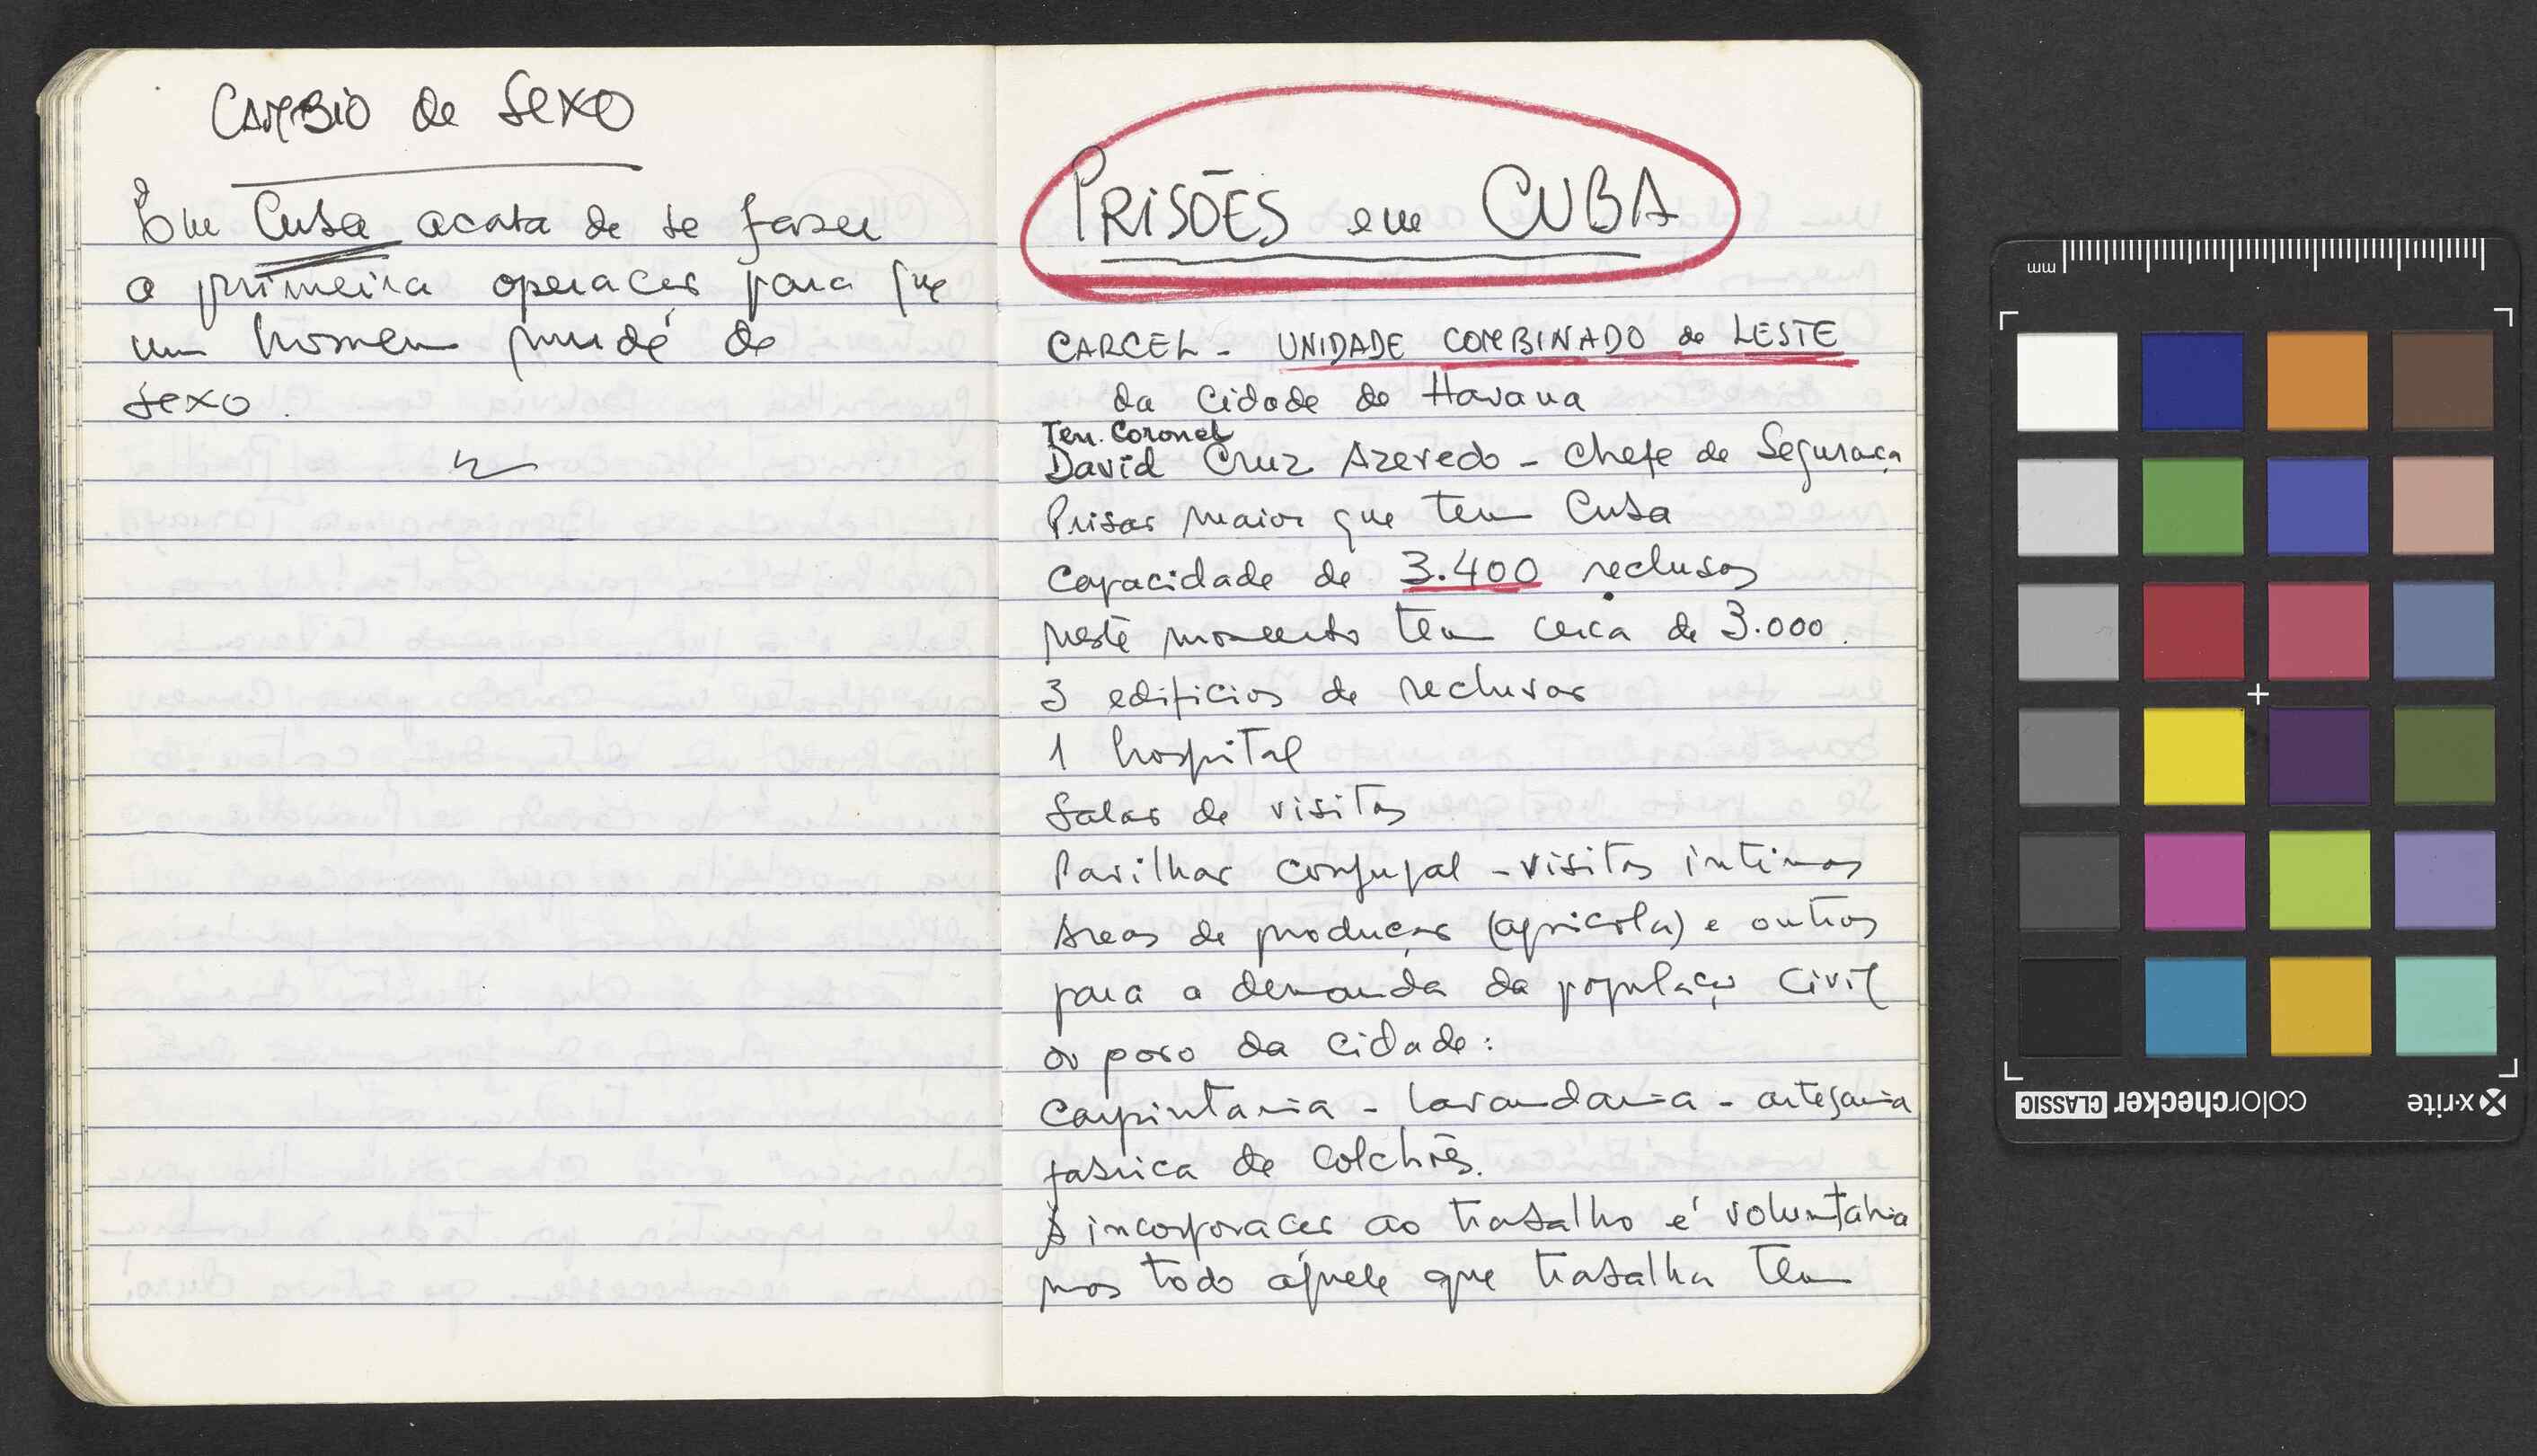 CAMBIO de SEXO
Em Cuba acaba de se fazer
a primeira operação para que
um homem mude de
sexo.
PRISÕES em CUBA
CARCEL - UNIDADE COMBINADO de LESTE
da Cidade de Havana
Ten. Coronel
David Cruz Azevedo - Chefe de Seguraça
Prisão maior que tem Cuba
Capacidade de 3.400 reclusos
neste momento tem cerca de 3.000.
3 edificios de reclusos
1 hospital
Salas de visitas
Pavilhão conjugal - visitas intimas
Areas de produção (agricola) e outros
para a demanda da população civil
ou povo da cidade:
Carpintaria - lavandaria - artesania
fabrica de colchões.
A incorporação ao trabalho é voluntaria
mas todo aquele que trabalha tem
mm
x-rite
colorchecker CLASSIC